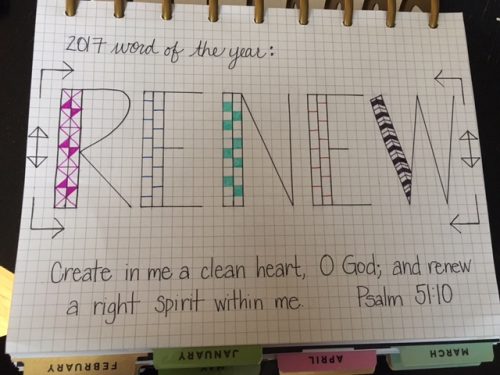 2017 word of the year:
RENEW
Create in me a clean heart, O God; and renew
a right spirit within me. Psalm 51:10
FEBRUARY JANUARY APRIL MARCH